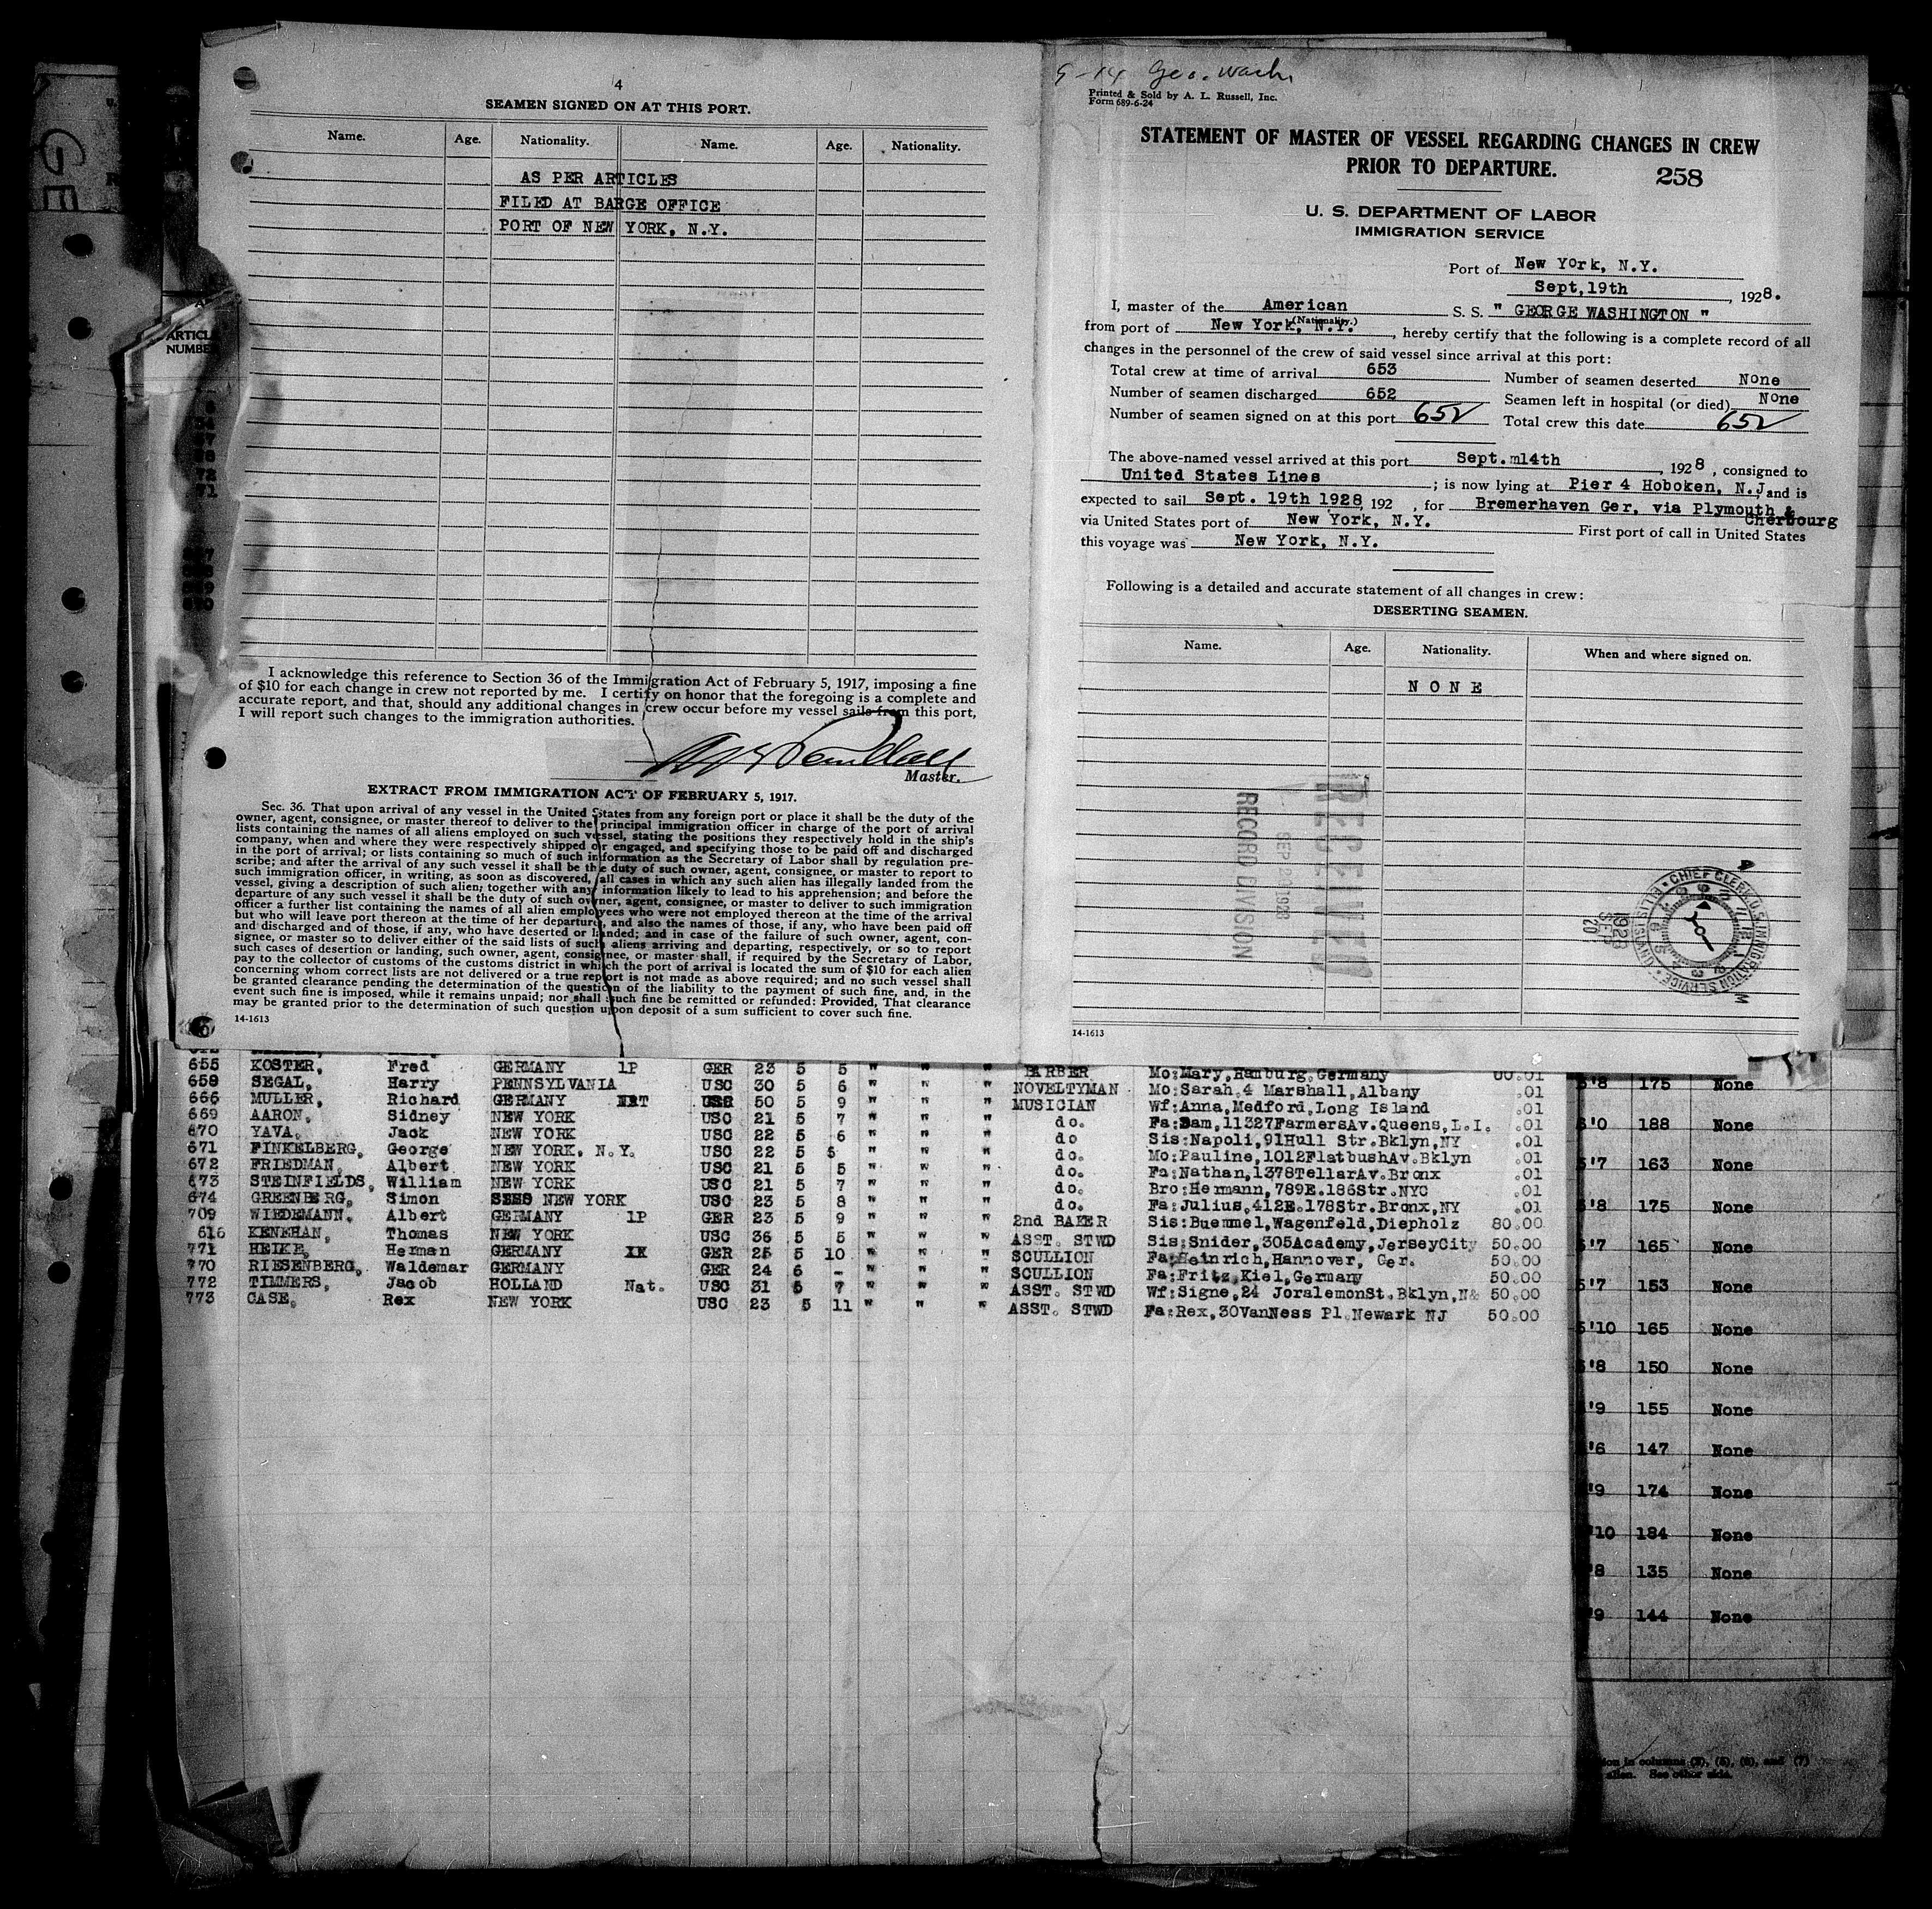 4
SEAMEN SIGNED ON AT THIS PORT.
Name. Age. Nationality. Name. Age. Nationality.
AS PER ARTICLES
FILED AT BARGE OFFICE
PORT OF NEW YORK, N.Y.
I acknowledge this reference to Section 36 of the Immigration Act of February 5, 1917, imposing a fine
of $10 for each change in crew not reported by me. I certify on honor that the foregoing is a complete and
accurate report, and that, should any additional changes in crew occur before my vessel sails from this port,
I will report such changes to the immigration authorities.
Master.
EXTRACT FROM IMMIGRATION ACT OF FEBRUARY 5, 1917.
Sec. 36. That upon arrival of any vessel in the United States from any foreign port or place it shall be the duty of the
owner, agent, consignee, or master thereof to deliver to the principal immigration officer in charge of the port of arrival
lists containing the names of all aliens employed on such vessel, stating the positions they respectively hold in the ship's
company, when and where they were respectively shipped or engaged, and specifying those to be paid off and discharged
in the port of arrival; or lists containing so much of such information as the Secretary of Labor shall by regulation pre-
scribe; and after the arrival of any such vessel it shall be the duty of such owner, agent, consignee, or master to report to
such immigration officer, in writing, as soon as discovered, all cases in which any such alien has illegally landed from the
vessel, giving a description of such alien, together with any information likely to lead to his apprehension; and before the
departure of any such vessel it shall be the duty of such owner, agent, consignee, or master to deliver to such immigration
officer a further list containing the names of all alien employees who were not employed thereon at the time of the arrival
but who will leave port thereon at the time of her departure, and also the names of those, if any, who have been paid off
and discharged and of those, if any, who have deserted or landed; and in case of the failure of such owner, agent, con-
signee, or master so to deliver either of the said lists of such aliens arriving and departing, respectively, or so to report
such cases of desertion or landing, such owner, agent, consignee, or master shall, if required by the Secretary of Labor,
pay to the collector of customs of the customs district in which the port of arrival is located the sum of $10 for each alien
concerning whom correct lists are not delivered or a true report is not made as above required; and no such vessel shall
be granted clearance pending the determination of the question of the liability to the payment of such fine, and, in the
event such fine is imposed, while it remains unpaid; nor shall such fine be remitted or refunded: Provided, That clearance
may be granted prior to the determination of such question upon deposit of a sum sufficient to cover such fine.
14-1613
9-14 Geo. Wash.
Printed & Sold by A. L. Russell, Inc.
Form 689-6-24
STATEMENT OF MASTER OF VESSEL REGARDING CHANGES IN CREW
PRIOR TO DEPARTURE. 258
U. S. DEPARTMENT OF LABOR
IMMIGRATION SERVICE
Port of New York, N.Y.
Sept,19th, 1928.
I, master of the American S. S. " GEORGE WASHINGTON "
(Nationality.)
from port of New York, N.Y., hereby certify that the following is a complete record of all
changes in the personnel of the crew of said vessel since arrival at this port:
Total crew at time of arrival 653 Number of seamen deserted None
Number of seamen discharged 652 Seamen left in hospital (or died) None
Number of seamen signed on at this port 652 Total crew this date 652
The above-named vessel arrived at this port Sept.m14th, 1928, consigned to
United States Lines; is now lying at Pier 4 Hoboken, N.J and is
expected to sail Sept. 19th 1928, 192 , for Bremerhaven Ger. via Plymouth &
Cherbourg
via United States port of New York, N.Y. First port of call in United States
this voyage was New York, N.Y.
Following is a detailed and accurate statement of all changes in crew:
DESERTING SEAMEN.
Name. Age. Nationality. When and where signed on.
N O N E
RECEIVED
SEP 1928
RECORD DIVISION
CHIEF CLERK U.S. IMMIGRATION SERVICE ELLIS ISLAND
1928 SEP 20
A
M
14-1613
ARTICLE
NUMBER
655 KOSTER, Fred GERMANY 1P GER 23 5 5 " " " BARBER Mo:Mary,Hamburg,Germany .01
658 SEGAL, Harry PENNSYLVANIA USC 30 5 6 " " " NOVELTYMAN Mo:Sarah,4 Marshall,Albany .01
666 MULLER, Richard GERMANY 50 5 9 " " " MUSICIAN Wf:Anna,Medford,Long Island .01
669 AARON, Sidney NEW YORK USC 21 5 7 " " " do. Fa:Sam,11327FarmersAv.Queens,L.I. .01
670 YAVA, Jack NEW YORK USC 22 5 6 " " " do Sis:Napoli,91Hull Str.Bklyn,NY .01
671 FINKELBERG, George NEW YORK, N.Y. USC 22 5 5 " " " do. Mo:Pauline,1012FlatbushAv.Bklyn .01
672 FRIEDMAN, Albert NEW YORK USC 21 5 5 " " " do. Fa:Nathan,1378TellarAv.Bronx .01
673 STEINFIELDS, William NEW YORK USC 21 5 7 " " " do. Bro:Hermann,789E.186Str.NYC .01
674 GREENBERG, Simon NEW YORK USC 23 5 8 " " " do. Fa:Julius,412E.178Str.Bronx,NY .01
709 WIEDEMANN, Albert GERMANY 1P GER 23 5 9 " " " 2nd BAKER Sis:Buemmel,Wagenfeld,Diepholz 80.00
616 KENEHAN, Thomas NEW YORK USC 36 5 5 " " " ASST. STWD Sis:Snider,305Academy,JerseyCity 50.00
771 HEIKE, Herman GERMANY GER 25 5 10 " " " SCULLION Fa:Heinrich,Hannover, Ger. 50.00
770 RIESENBERG, Waldemar GERMANY GER 24 6 - " " " SCULLION Fa:Fritz,Kiel,Germany 50.00
772 TIMMERS, Jacob HOLLAND Nat. USC 31 5 7 " " " ASST. STWD Wf:Signe,24 JoralemonSt.Bklyn,N& 50.00
773 CASE, Rex NEW YORK USC 23 5 11 " " " ASST. STWD Fa:Rex,30VanNess Pl.Newark NJ 50.00
5'8 175 None
5'0 188 None
5'7 163 None
5'8 175 None
5'7 165 None
5'7 153 None
5'10 165 None
5'8 150 None
'9 155 None
'6 147 None
'9 174 None
'10 184 None
'8 135 None
'9 144 None
in columns (3), (5), (6), and (7)
alien. See other side.